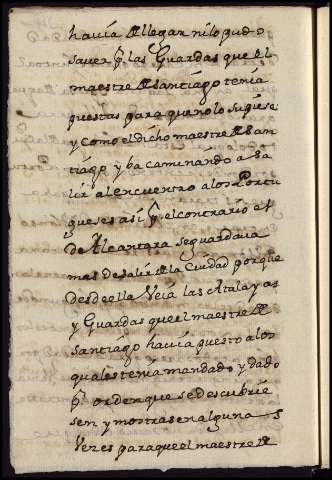 havia de llegar ni lo pudo
saver p.r las Guardas que el
maestre de santiago tenia
puestas para que no lo supiese
y como el dicho maestre de san
tiago yba caminando a sa
lir al encuentro a los Portu
gueses asi p.r el contrario el
de Alcantara se guardava
mas de salir de la Ciudad porque
desde ella Veia las Atalayas
y Guardas que el maestre de
santiago havia puesto a los
quales tenia mandado y dado
p.r orden que se descubrie
sen y mostrasen algunas
Veces para que el maestre de